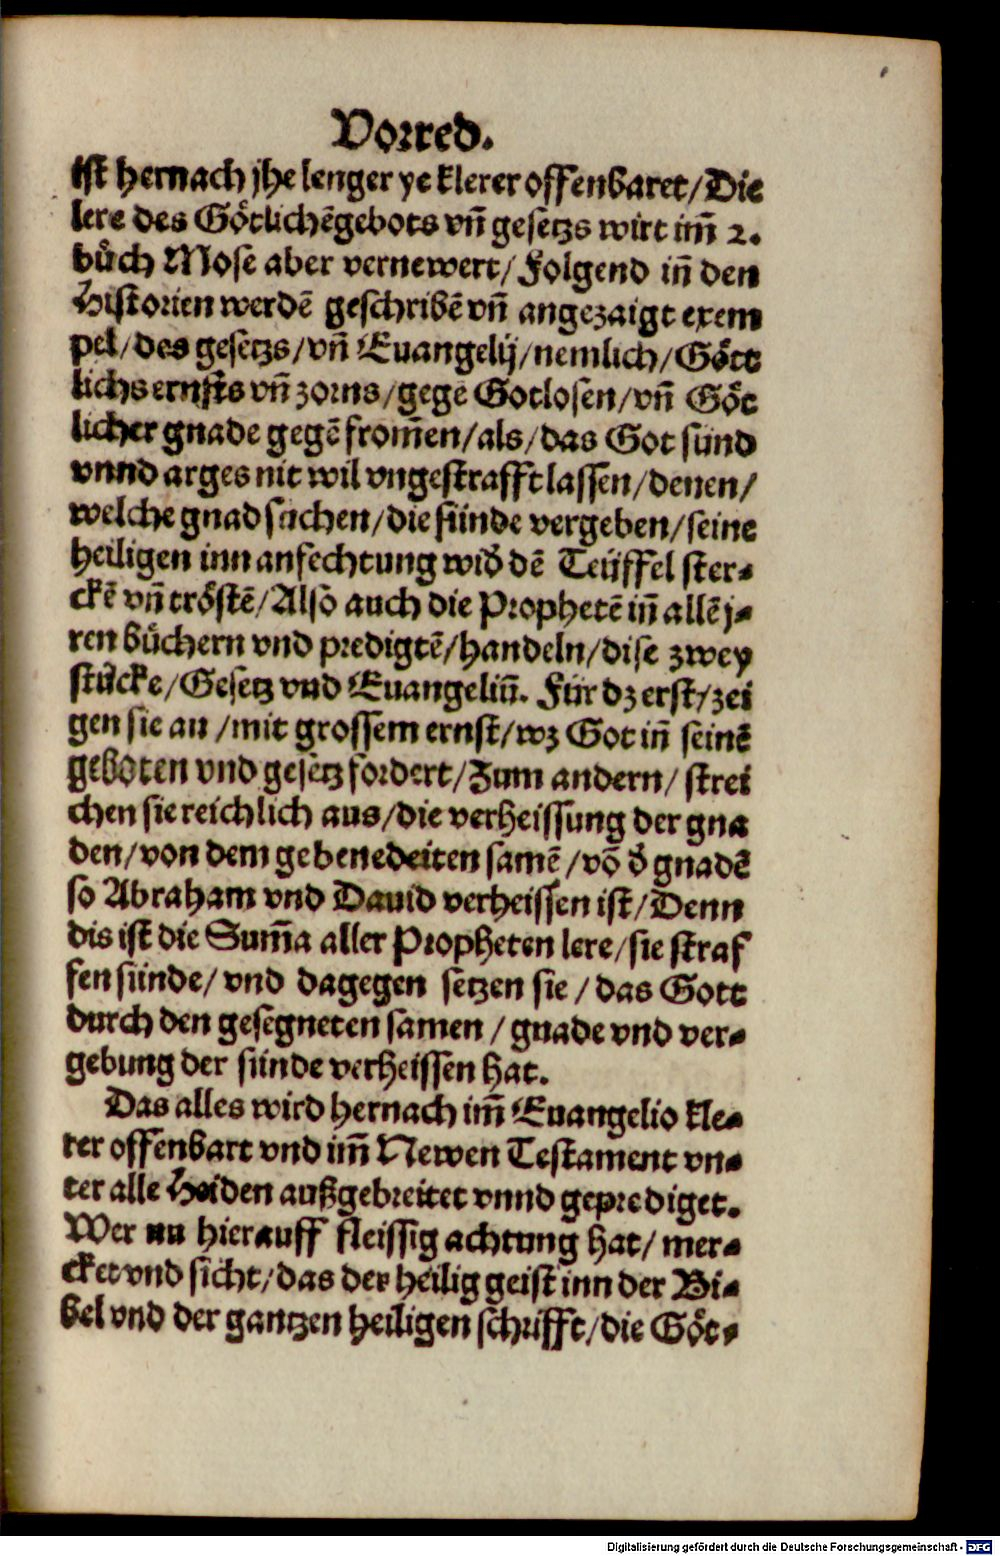 Vorred.
ist hernach jhe lenger ye klerer offenbaret/Die
lere des Götlichēgebots vn̄ gesetzs wirt im̄ 2.
bůch Mose aber vernewert/Folgend in̄ den
Historien werdē geschribē vn̄ angezaigt exem
pel/des gesetzs/vn̄ Euangelij/nemlich/Gött
lichs ernsts vn̄ zorns/gegē Gotlosen/vn̄ Göt
licher gnade gegē from̄en/als/das Got sünd
vnnd arges nit wil vngestrafft lassen/denen/
welche gnad suchen/die sünde vergeben/seine
heiligen inn anfechtung wid̕ dē Teüffel ster-
ckē vn̄ tröstē/Also auch die Prophetē in̄ allē j-
ren bůchern vnd predigtē/handeln/dise zwey
stůcke/Gesetz vnd Euangeliū. Für dz erst/zei
gen sie an/mit grossem ernst/wz Got in̄ seinē
geboten vnd gesetz fordert/Zum andern/strei
chen sie reichlich aus/die verheissung der gna
den/von dem gebenedeiten samē/vō d̕ gnadē
so Abraham vnd Dauid verheissen ist/Denn
dis ist die Sum̄a aller Propheten lere/sie straf
fen sünde/vnd dagegen setzen sie/das Gott
durch den gesegneten samen/gnade vnd ver-
gebung der sünde verheissen hat.
Das alles wird hernach im̄ Euangelio kle-
rer offenbart vnd im̄ Newen Testament vn-
ter alle Heiden außgebreitet vnnd geprediget.
Wer nu hierauff fleissig achtung hat/mer-
cket vnd sicht/das der heilig geist inn der Bi-
bel vnd der gantzen heiligen schrifft/die Göt-
Digitalisierung gefördert durch die Deutsche Forschungsgemeinschaft - DFG